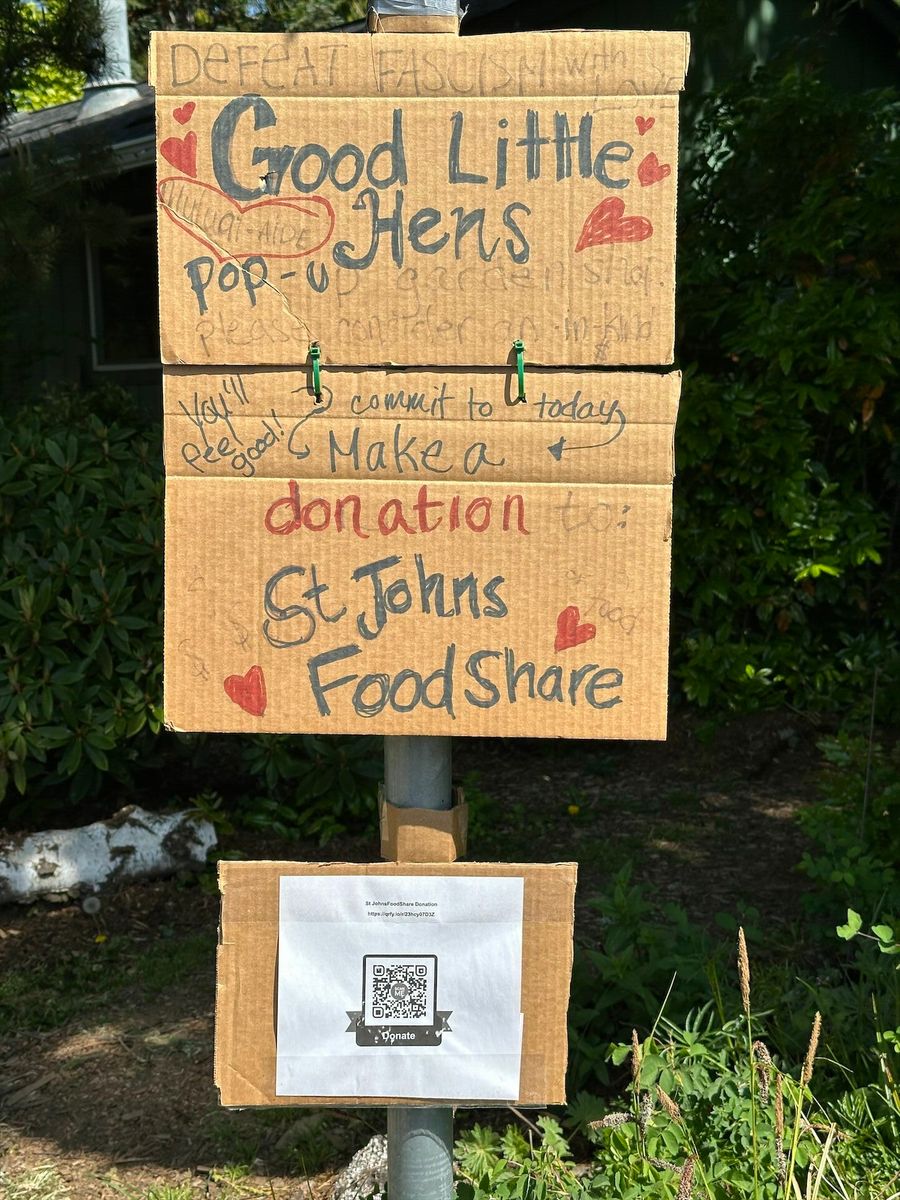 DEFEAT FASCISM with LOVE
Good Little
Hens
Mutual-AIDE
POP-UP garden shop.
please consider an in-kind
$
You'll feel good!
commit to today
Make a
donation to:
or food
St Johns
$ $
FoodShare
St JohnsFoodShare Donation
https://qrfy.io/r/23hcy07D3Z
SCAN ME
Donate